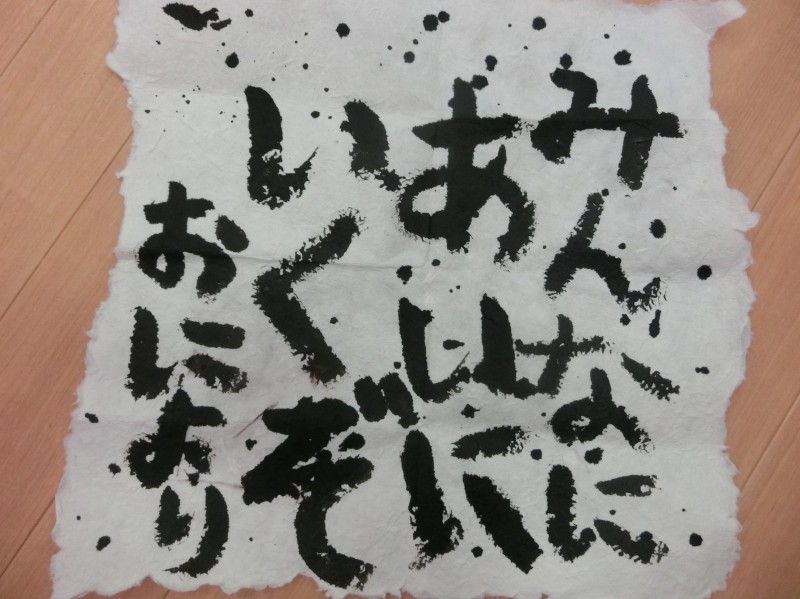 みんなに
あいに
いくぞ
おにより